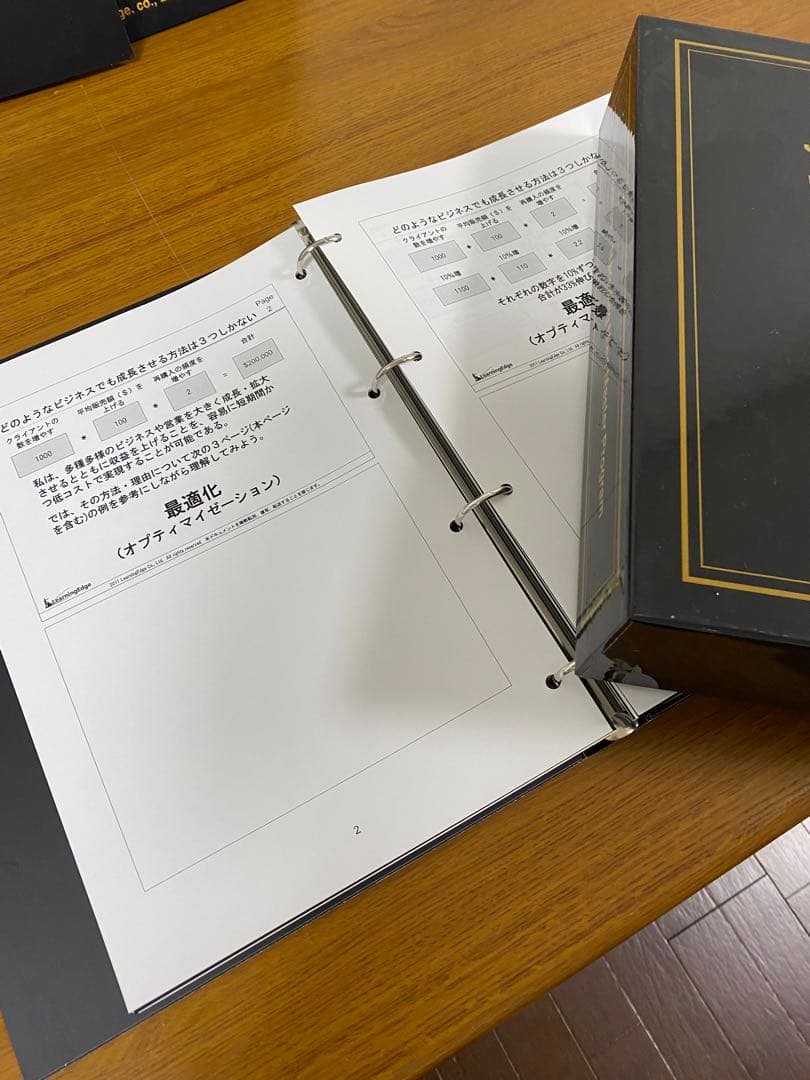 ge. co.,
Page
2
どのようなビジネスでも成長させる方法は３つしかない
クライアントの
数を増やす
平均販売額（＄）を
上げる
再購入の頻度を
増やす
合計
1000 * 100 * 2 = $200,000
私は、多種多様のビジネスや営業を大きく成長・拡大
させるとともに収益を上げることを、容易に短期間か
つ低コストで実現することが可能である。
では、その方法・理由について次の３ページ(本ページ
を含む)の例を参考にしながら理解してみよう。
最適化
（オプティマイゼーション）
LearningEdge
2011 LearningEdge Co., Ltd. All rights reserved. 本ドキュメントを無断転用、複写、転送することを禁じます。
2
どのようなビジネスでも成長させる方法は３つしかな
クライアントの
数を増やす
平均販売額（＄）を
上げる
再購入の頻度を
増やす
1000 * 100 * 2 =
10%増
10%増
10%増
1100 * 110 * 2.2
それぞれの数字を10%ずつ
合計が33%伸び
最適
（オプティマイ
LearningEdge
2011 LearningEdge Co., Ltd. All
Program